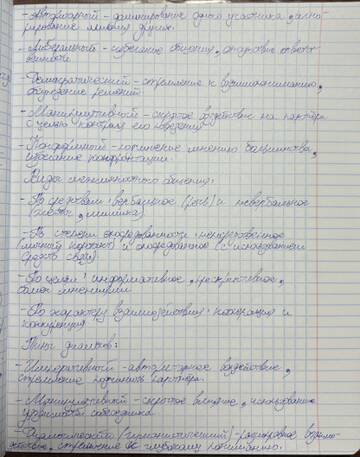 - Авторитарный - доминирование одного участника, игно
рирование мнения других.
- Либеральный - избегание общения, отсутствие ответст
венности
- Демократический - стремление к взаимопониманию,
обсуждение решений
- Манипулятивный - скрытое воздействие на партнёра
с целью контроля его поведения
- Конформный - подчинение мнению большинства,
избегание конфронтации.
Виды межличностного общения:
- По средствам: вербальное (речь) и невербальное
(жесты, мимика)
- По степени опосредованности: непосредственное
(личный контакт) и опосредованное (с использованием
средств связи)
- По целям: информативное, 
обмен мнениями
- По характеру взаимодействия: кооперация и
конкуренция
Типы диалогов:
- Императивный - авторитарное воздействие,
стремление подчинить партнёра.
- Манипулятивный - скрытое влияние, использование
собеседника
- Диалогический (гуманистический) - равноправное взаимо
действие, стремление к глубокому пониманию.